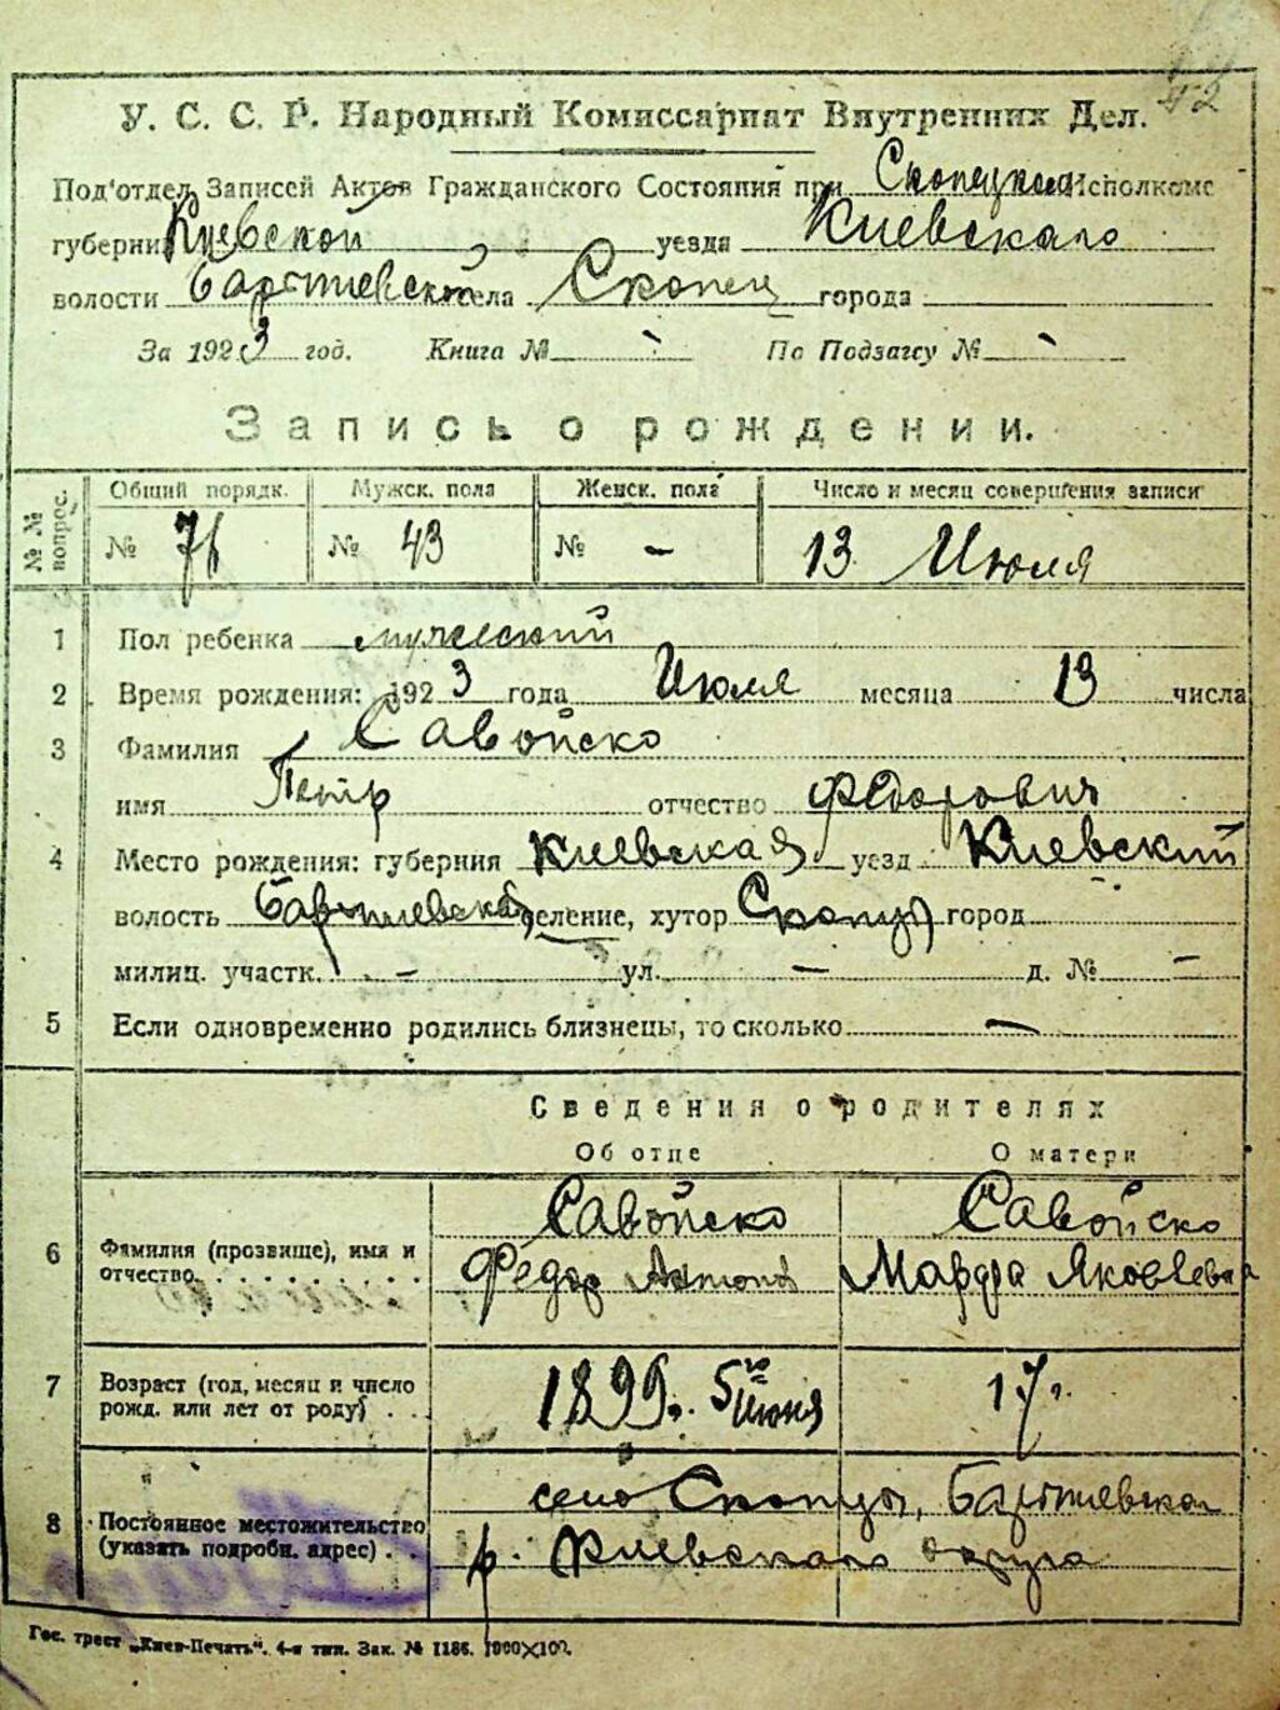 У. С. С. Р. Народный Комиссариат Внутренних Дел.
Под'отдел Записей Актов Гражданского Состояния при Скопецком Исполкоме
губернии Киевской уезда Киевскаго
волости села Скопец города
За 1923 год. Книга № По Подзагсу №
Запись о рождении.
№ № вопрос. Общий порядк. Мужск. пола Женск. пола Число и месяц совершения записи
№ 76 № 43 № - 13 Июля
1 Пол ребенка мужеский
2 Время рождения: 1923 года Июля месяца 13 числа
3 Фамилия Савойско
имя Петр отчество Федорович
4 Место рождения: губерния Киевская уезд Киевский
волость селение, хутор Скопцы город
милиц. участк. - ул. - д. № -
5 Если одновременно родились близнецы, то сколько -
Сведения о родителях
Об отце О матери
6 Фамилия (прозвище), имя и отчество
Савойско Савойско
Федор Антонов Марфа Яковлевна
7 Возраст (год, месяц и число рожд. или лет от роду)
1899 г. 5го Июня 17 г.
8 Постоянное местожительство (указать подробн. адрес)
село Скопцы,
р. Киевскаго округа
Гос. трест „Киев-Печать“. 4-я тип. Зак. № 1186. 1000×100.